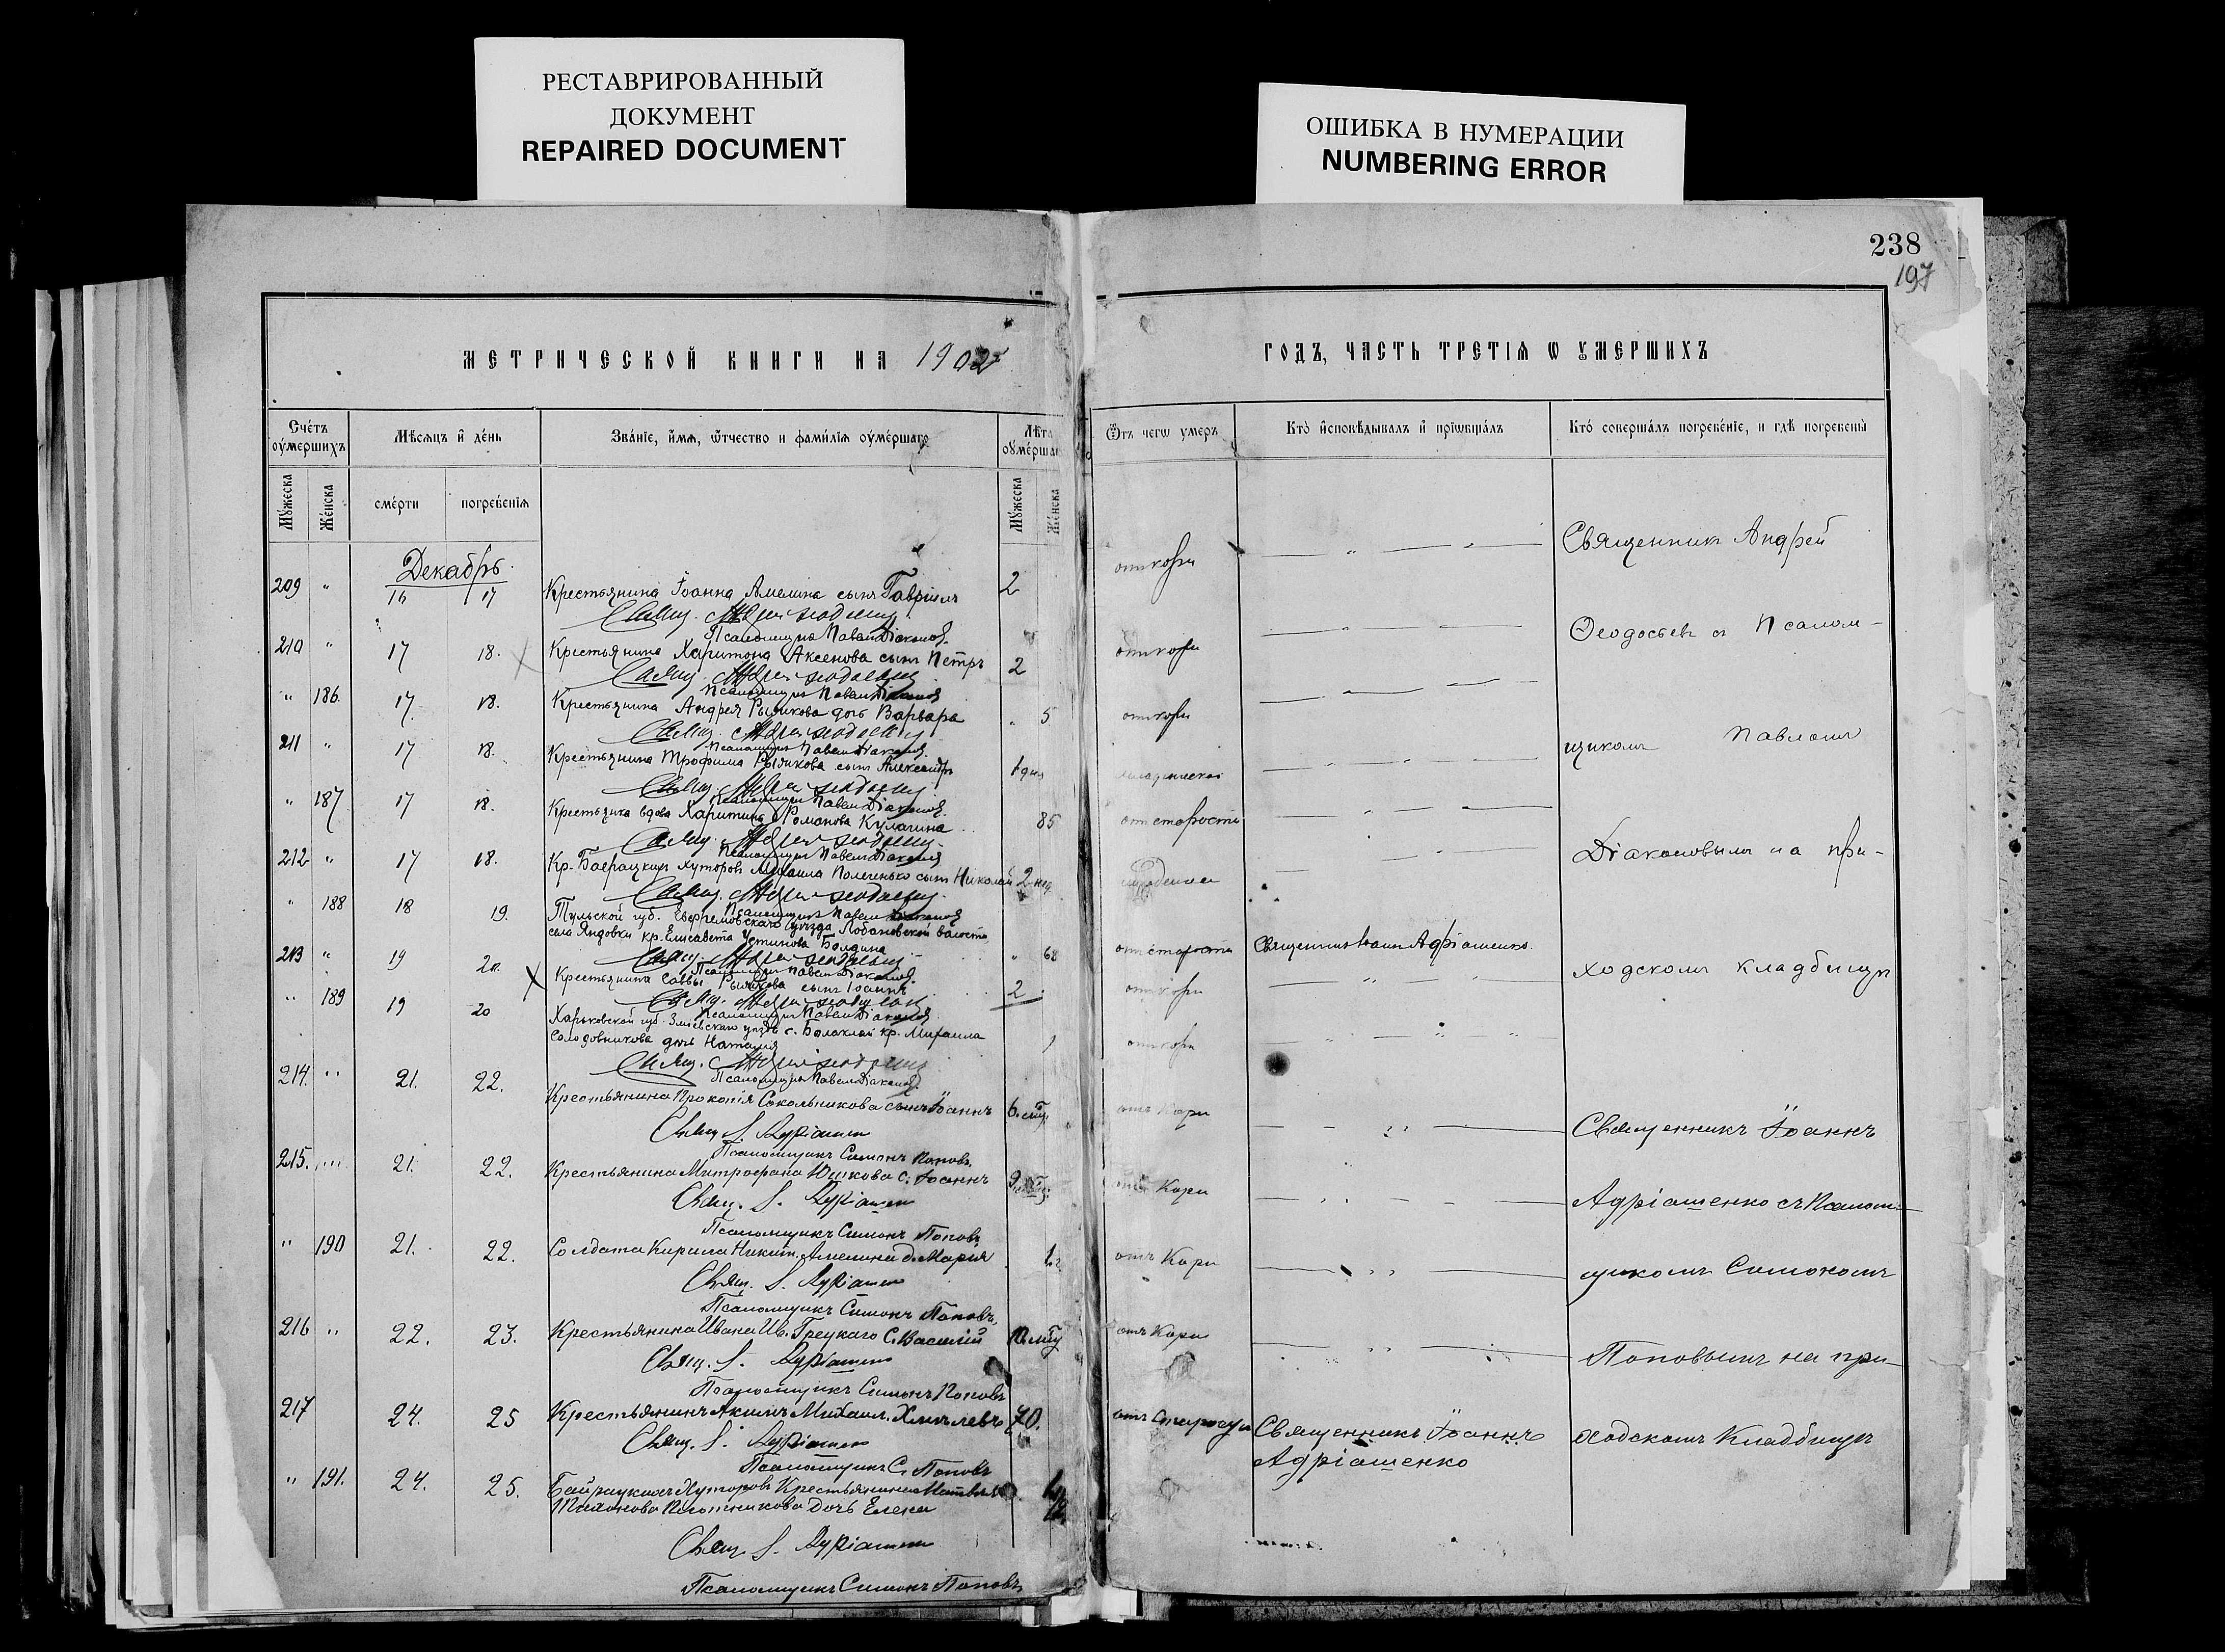 РЕСТАВРИРОВАННЫЙ
ДОКУМЕНТ
REPAIRED DOCUMENT
ОШИБКА В НУМЕРАЦИИ
NUMBERING ERROR
238
197
МЕТРИЧЕСКОЙ КНИГИ НА 1902
ГОДЪ, ЧАСТЬ ТРЕТІѦ Ѡ ОУМЕРШИХЪ
Счетъ оумершихъ
Мѣсѧцъ и день
Званіе, имѧ, ѿчество и фамиліѧ оумершагѡ
Лѣта оумерша
Ѿтъ чегѡ умеръ
Кто исповѣдывалъ и пріѡбщалъ
Кто совершалъ погребеніе, и гдѣ погребены
Мужеска
Женска
смерти
погребеніѧ
Мужеска
Женска
Декабрь
209 " 16 17 Крестьянина Іоанна Амелина сынъ Гавріилъ 2 отъ кори
Священникъ Андрей
Псаломщикъ Павелъ Діаконовъ
210 " 17 18. Крестьянина Харитона Аксенова сынъ Петръ 2 отъ кори
Ѳеодосьевъ съ Псалом-
Псаломщикъ Павелъ Діаконовъ
" 186. 17. 18. Крестьянина Андрея Рыжкова дочь Варвара " 5 отъ кори
Псаломщикъ Павелъ Діаконовъ
211 " 17 18. Крестьянина Трофима Рыжкова сынъ Александръ 1 дня
щикомъ Павломъ
Псаломщикъ Павелъ Діаконовъ
" 187 17 18. Крестьянка вдова Харитина Романова Кулагина 85 отъ старости
Псаломщикъ Павелъ Діаконовъ
212 " 17 18. Кр. Баерацкихъ хуторов Михаила сынъ Николай 2 нед
Діаконовымъ на при-
Псаломщикъ Павелъ Діаконовъ
" 188 18 19. Тульской губ. Ефремовскаго уѣзда Лобановской волости
села Яндовки кр. Елисавета Устинова Болдина " 68 отъ старости Священникъ Іоаннъ Адріашенко
Псаломщикъ Павелъ Діаконовъ
213 " 19 20. Крестьянина Саввы Рыжкова сынъ Іоаннъ 2 отъ кори
ходскомъ кладбищѣ
Псаломщикъ Павелъ Діаконовъ
" 189 19 20 Харьковской губ. Зміевскаго уѣзда с. Балаклеи кр. Михаила
Солодовникова дочь Наталія 1 отъ кори
Псаломщикъ Павелъ Діаконовъ
214. " 21. 22. Крестьянина Прокопія Сокольникова сынъ Іоаннъ 6. мѣц. отъ Кори
Свящ. І. Адріашенко
Священникъ Іоаннъ
Псаломщикъ Симонъ Поповъ
215. " 21. 22. Крестьянина Митрофана Юшкова с. Іоаннъ 9 мѣц. отъ Кори
Свящ. І. Адріашенко
Адріашенко съ Псалом-
Псаломщикъ Симонъ Поповъ
" 190 21. 22. Солдата Кирила Никит. Амелина д. Марія 1 г. отъ Кори
Свящ. І. Адріашенко
щикомъ Симономъ
Псаломщикъ Симонъ Поповъ
216 " 22. 23. Крестьянина Ивана Ив. Грецкаго С. Василій мѣц отъ Кори
Свящ. І. Адріашенко
Поповымъ на при-
Псаломщикъ Симонъ Поповъ
217 24. 25 Крестьянинъ Акимъ Михаил. Хмылевъ 70. отъ старости Священникъ Іоаннъ
Адріашенко
ходскомъ Кладбищѣ
Свящ. І. Адріашенко
Псаломщикъ С. Поповъ
" 191. 24. 25. Байрацкихъ Хуторовъ Крестьянина Матвея
дочь Елена
Свящ. І. Адріашенко
Псаломщикъ Симонъ Поповъ